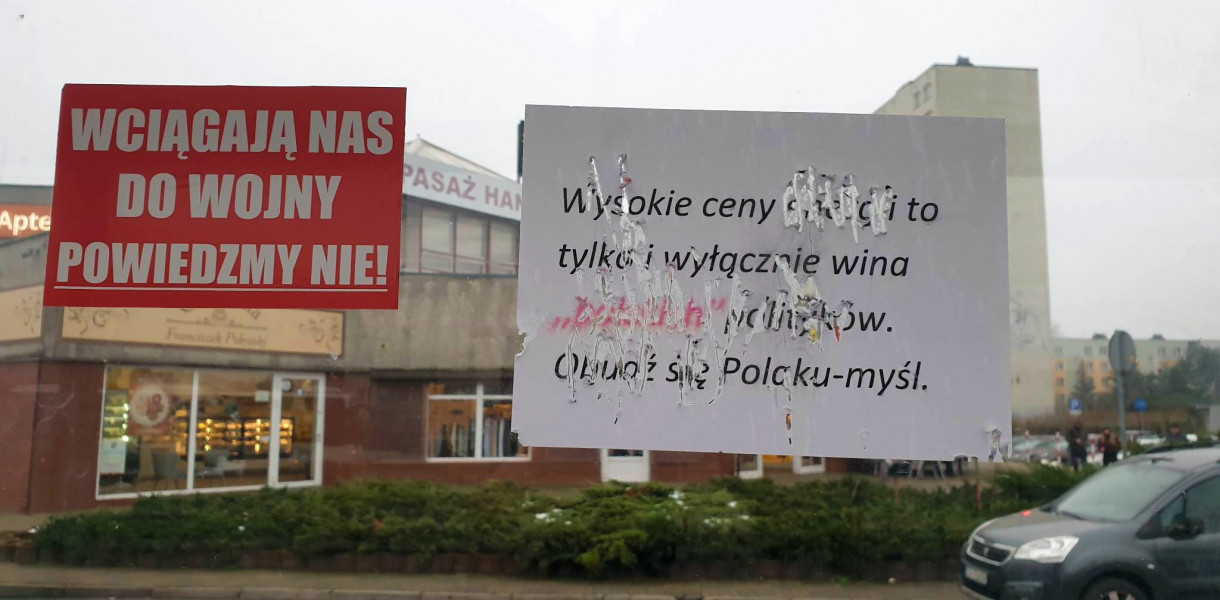 WCIĄGAJĄ NAS
DO WOJNY
POWIEDZMY NIE!
Wysokie ceny energii to
tylko i wyłącznie wina
polityków.
Obudź się Polaku-myśl.
PASAŻ HAN
Apte